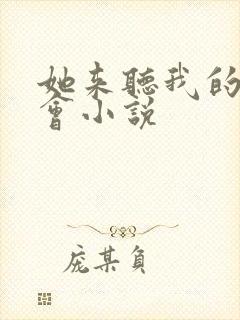 她来聽我的
會小説
庞某負